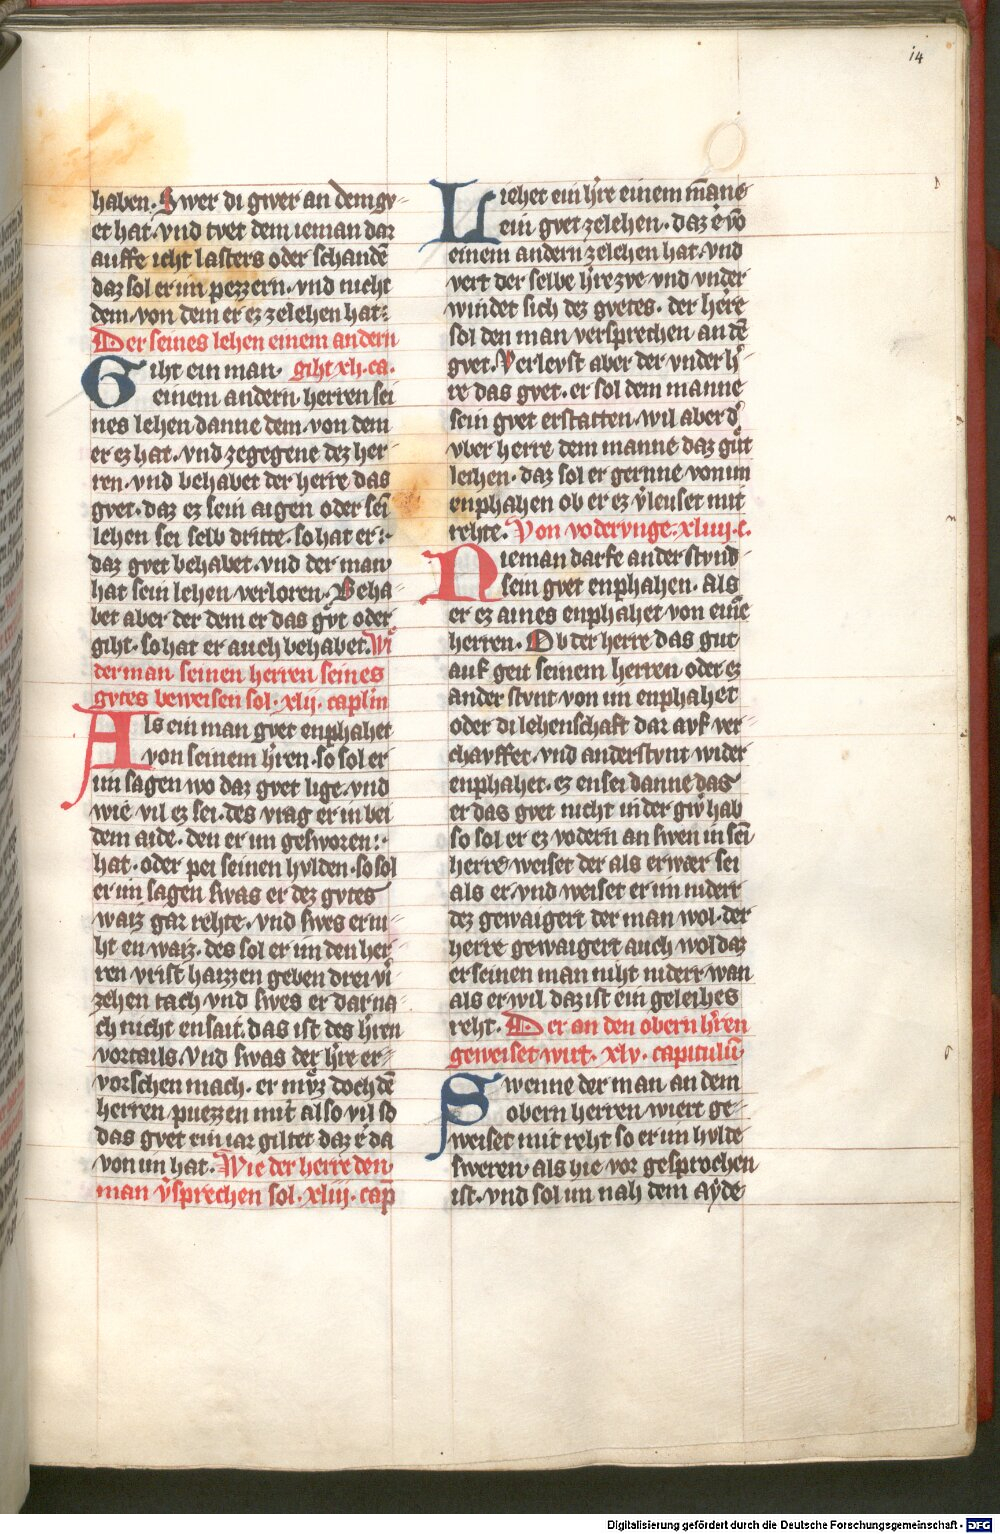 14
haben. Swer di gwer an dem gv-
et hat. vnd tvet dem ieman dar
auffe icht lasters oder schandē
daz sol er im pezzern. vnd nicht
dem. von dem er ez zelehen hat:
Der seines lehen einem andern
Giht ein man. giht xli. ca.
einem andern. herren sei
nes lehen danne dem. von dem
er ez hat. vnd zegegene dez her-
ren. vnd behabet der herre das
gvet. daz ez sein aigen oder sei
lehen sei selb dritte. so hat er:
daz gvet behabet. vnd der man
hat sein lehen verloren. Beha
bet aber der dem er das gvt oder
giht. so hat er auch behabet. Wi
der man seinen herren seines
gvtes beweisen sol. xlii. caplin
Als ein man gvet enphahet
von seinem h'ren. so sol er
im sagen wo daz gvet lige. vnd
wie vil ez sei. des vrag er in bei
dem aide. den er im gesworen:
hat. oder pei seinen hvlden. so sol
er im sagen swas er dez gvtes
waiz gar rehte. vnd swes er ni-
ht en waiz. des sol er im den her
ren vrist haizzen geben drei vi'
zehen tach vnd swes er dar na-
ch nicht ensait. das ist des h'ren
vortails. Vnd swas der h're er-
vorschen mach. er mvz doch dē
herren puezzen mit also vil so
das gvet ein iar giltet daz e da
von im hat. Wie der herre den
man v'sprechen sol. xliii. cap
Liehet ein h're einem māne
ein gvet zelehen. daz e vō
einem andern zelehen hat. vnd
vert der selbe h're zve vnd vnder
windet sich dez gvetes. der here
sol den man versprechen an dē
gvet. Verlevst aber der vnder h'
re das gvet. er sol dem manne
sein gvet erstatten. wil aber d'
vber herre dem manne daz gůt
leihen. daz sol er gernne von im
enphahen ob er ez v'leuset mit
rehte. Von vodervnge. xliiii. c.
Nieman darfe ander stvnd
sein gvet enphahen. als
er ez aines enphahet von einē
herren. Ob der herre das gut
auf geit seinem herren oder ez
ander stvnt von im enphahet
oder di lehenschaft dar avf ver
chavffet. vnd anderstvnt wider
enphahet. ez ensei danne das
er das gvet nicht in der gw' hab
so sol er ez vodern an swen in sei
herre weiset der als erwær sei
als er. vnd weiset er im niderr
dez gewaigert der man wol. der
herre gewaigert auch wol daz
er seinen man niht niderr wan
als er wil daz ist ein geleihes
reht. Der an den obern h'ren
geweiset wirt. xlv. capitulū
Swenne der man an dem
obern herren wiert ge-
weiset mit reht so er im hvlte
sweren als hie vor gesprochen
ist. vnd sol im nah dem ayde
Digitalisierung gefördert durch die Deutsche Forschungsgemeinschaft - DFG